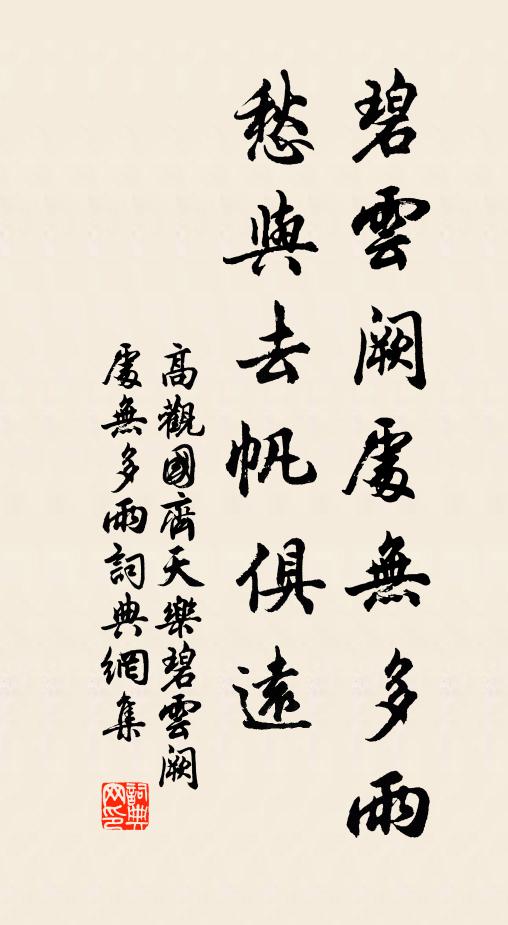 碧雲闕處無多雨
愁與去帆俱遠
高觀國齊天樂碧雲闕
處無多雨詞典網集
詞典
网印